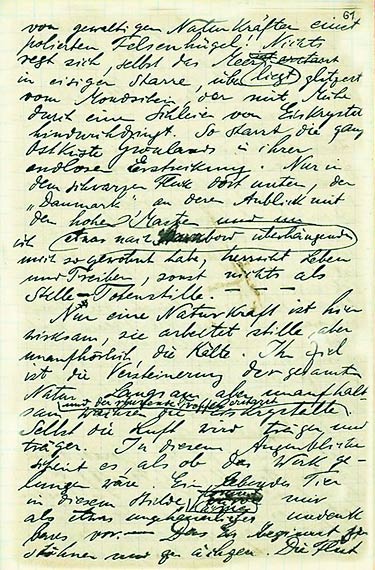 61
von gewaltigen Naturkräften einst
polierten Felsenhügel! Nichts
regt sich, selbst das Meer
in eisiger Starre, liegt glitzert
vom Mondschein, der mit Mühe
durch einen Schleier von Eiskrystallen
hindurchdringt. So starrt die ganze
Ostküste Grönlands in ihrer
endlosen Erstarrung. Nur in
dem schwarzen Fleck dort unten, der
„Danmark" an deren Anblick mit
den hohen Masten und
ich etwas nach überhängende
mich so gewöhnt habe, herrscht Leben
und Treiben, sonst nichts als
Stille – Totenstille. — —
Nur eine Naturkraft ist hier
wirksam, sie arbeitet stille, aber
unaufhörlich: die Kälte. Ihr Ziel
ist die Versteinerung der gesamten
Natur. Langsam aber unaufhalt-
sam wachsen die Eiskrystalle.
Selbst die Luft wird träger und
träger. In diesem Augenblicke
scheint es, als ob das Werk ge-
lungen wäre. Ein lebendes Tier
in diesem Bilde mir
als etwas ungeheuerliches undenk-
bares vor. — Das beginnt zu
stöhnen und zu ächzen. Die Flut